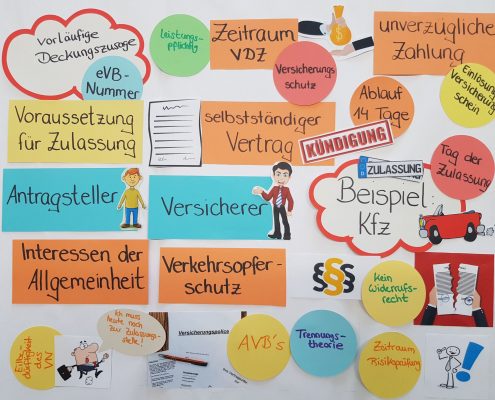 vorläufige
Deckungszusage
eVB-
Nummer
Leistungs-
pflichtig
Zeitraum
VDZ
Versicherungs
schutz
unverzügliche
Zahlung
Einlösung
Versicherung
schein
Voraussetzung
für Zulassung
selbstständiger
Vertrag
Ablauf
14 Tage
KÜNDIGUNG
Tag der
Zulassung
Antragsteller
Versicherer
ZULASSUNG
Beispiel:
Kfz
Interessen der
Allgemeinheit
Verkehrsopfer-
schutz
§§§
kein
Widerrufs-
recht
des
VN
Ich muss
heute noch
zur Zulassungs-
stelle!
Versicherungspolice
AVB's
Trennungs-
theorie
Zeitraum
Risikoprüfung